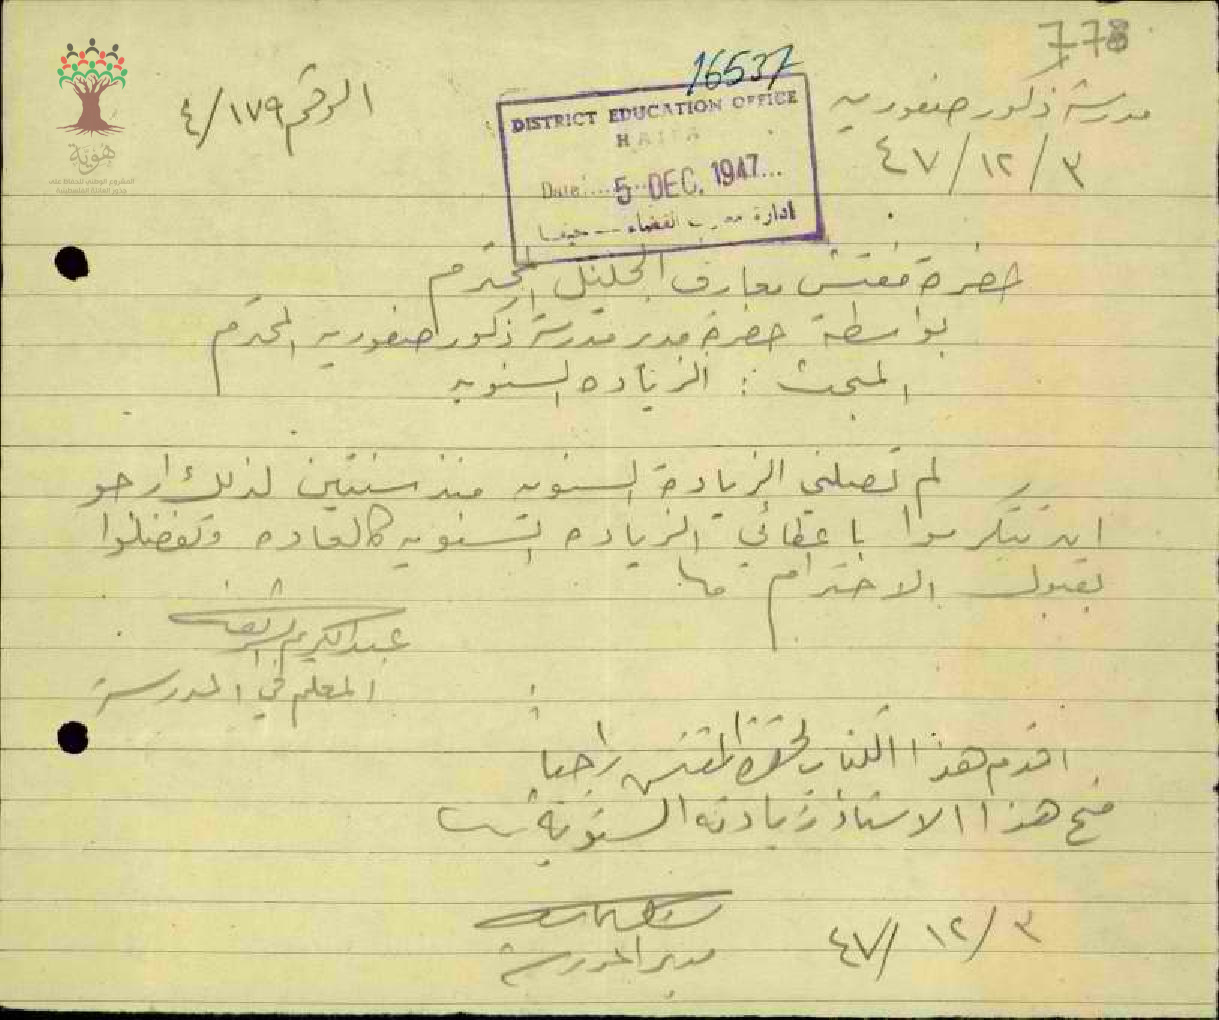 778
مدرسة ذكور صفوريه
٣/١٢/٤٧
الرقم ٤/١٧٩
16537
DISTRICT EDUCATION OFFICE
HAIFA
Date 5 DEC. 1947
ادارة معارف القضاء — حيفا
هوية
المشروع الوطني للحفاظ على
جذور العائلة الفلسطينية
حضرة مفتش معارف الجليل المحترم
بواسطة حضرة مدير مدرسة ذكور صفوريه المحترم
المبحث : الزياده السنويه
لم تصلني الزيادة السنويه منذ سنتين لذلك ارجو
ان تتكرموا باعطائي الزياده السنويه كالعاده وتفضلوا
بقبول الاحترام
عبدالكريم
المعلم في المدرسة
اقدم هذا الكتاب لحضرة المفتش راجيا
منح هذا الاستاذ زيادته السنوية
مدير المدرسة
٣/١٢/٤٧